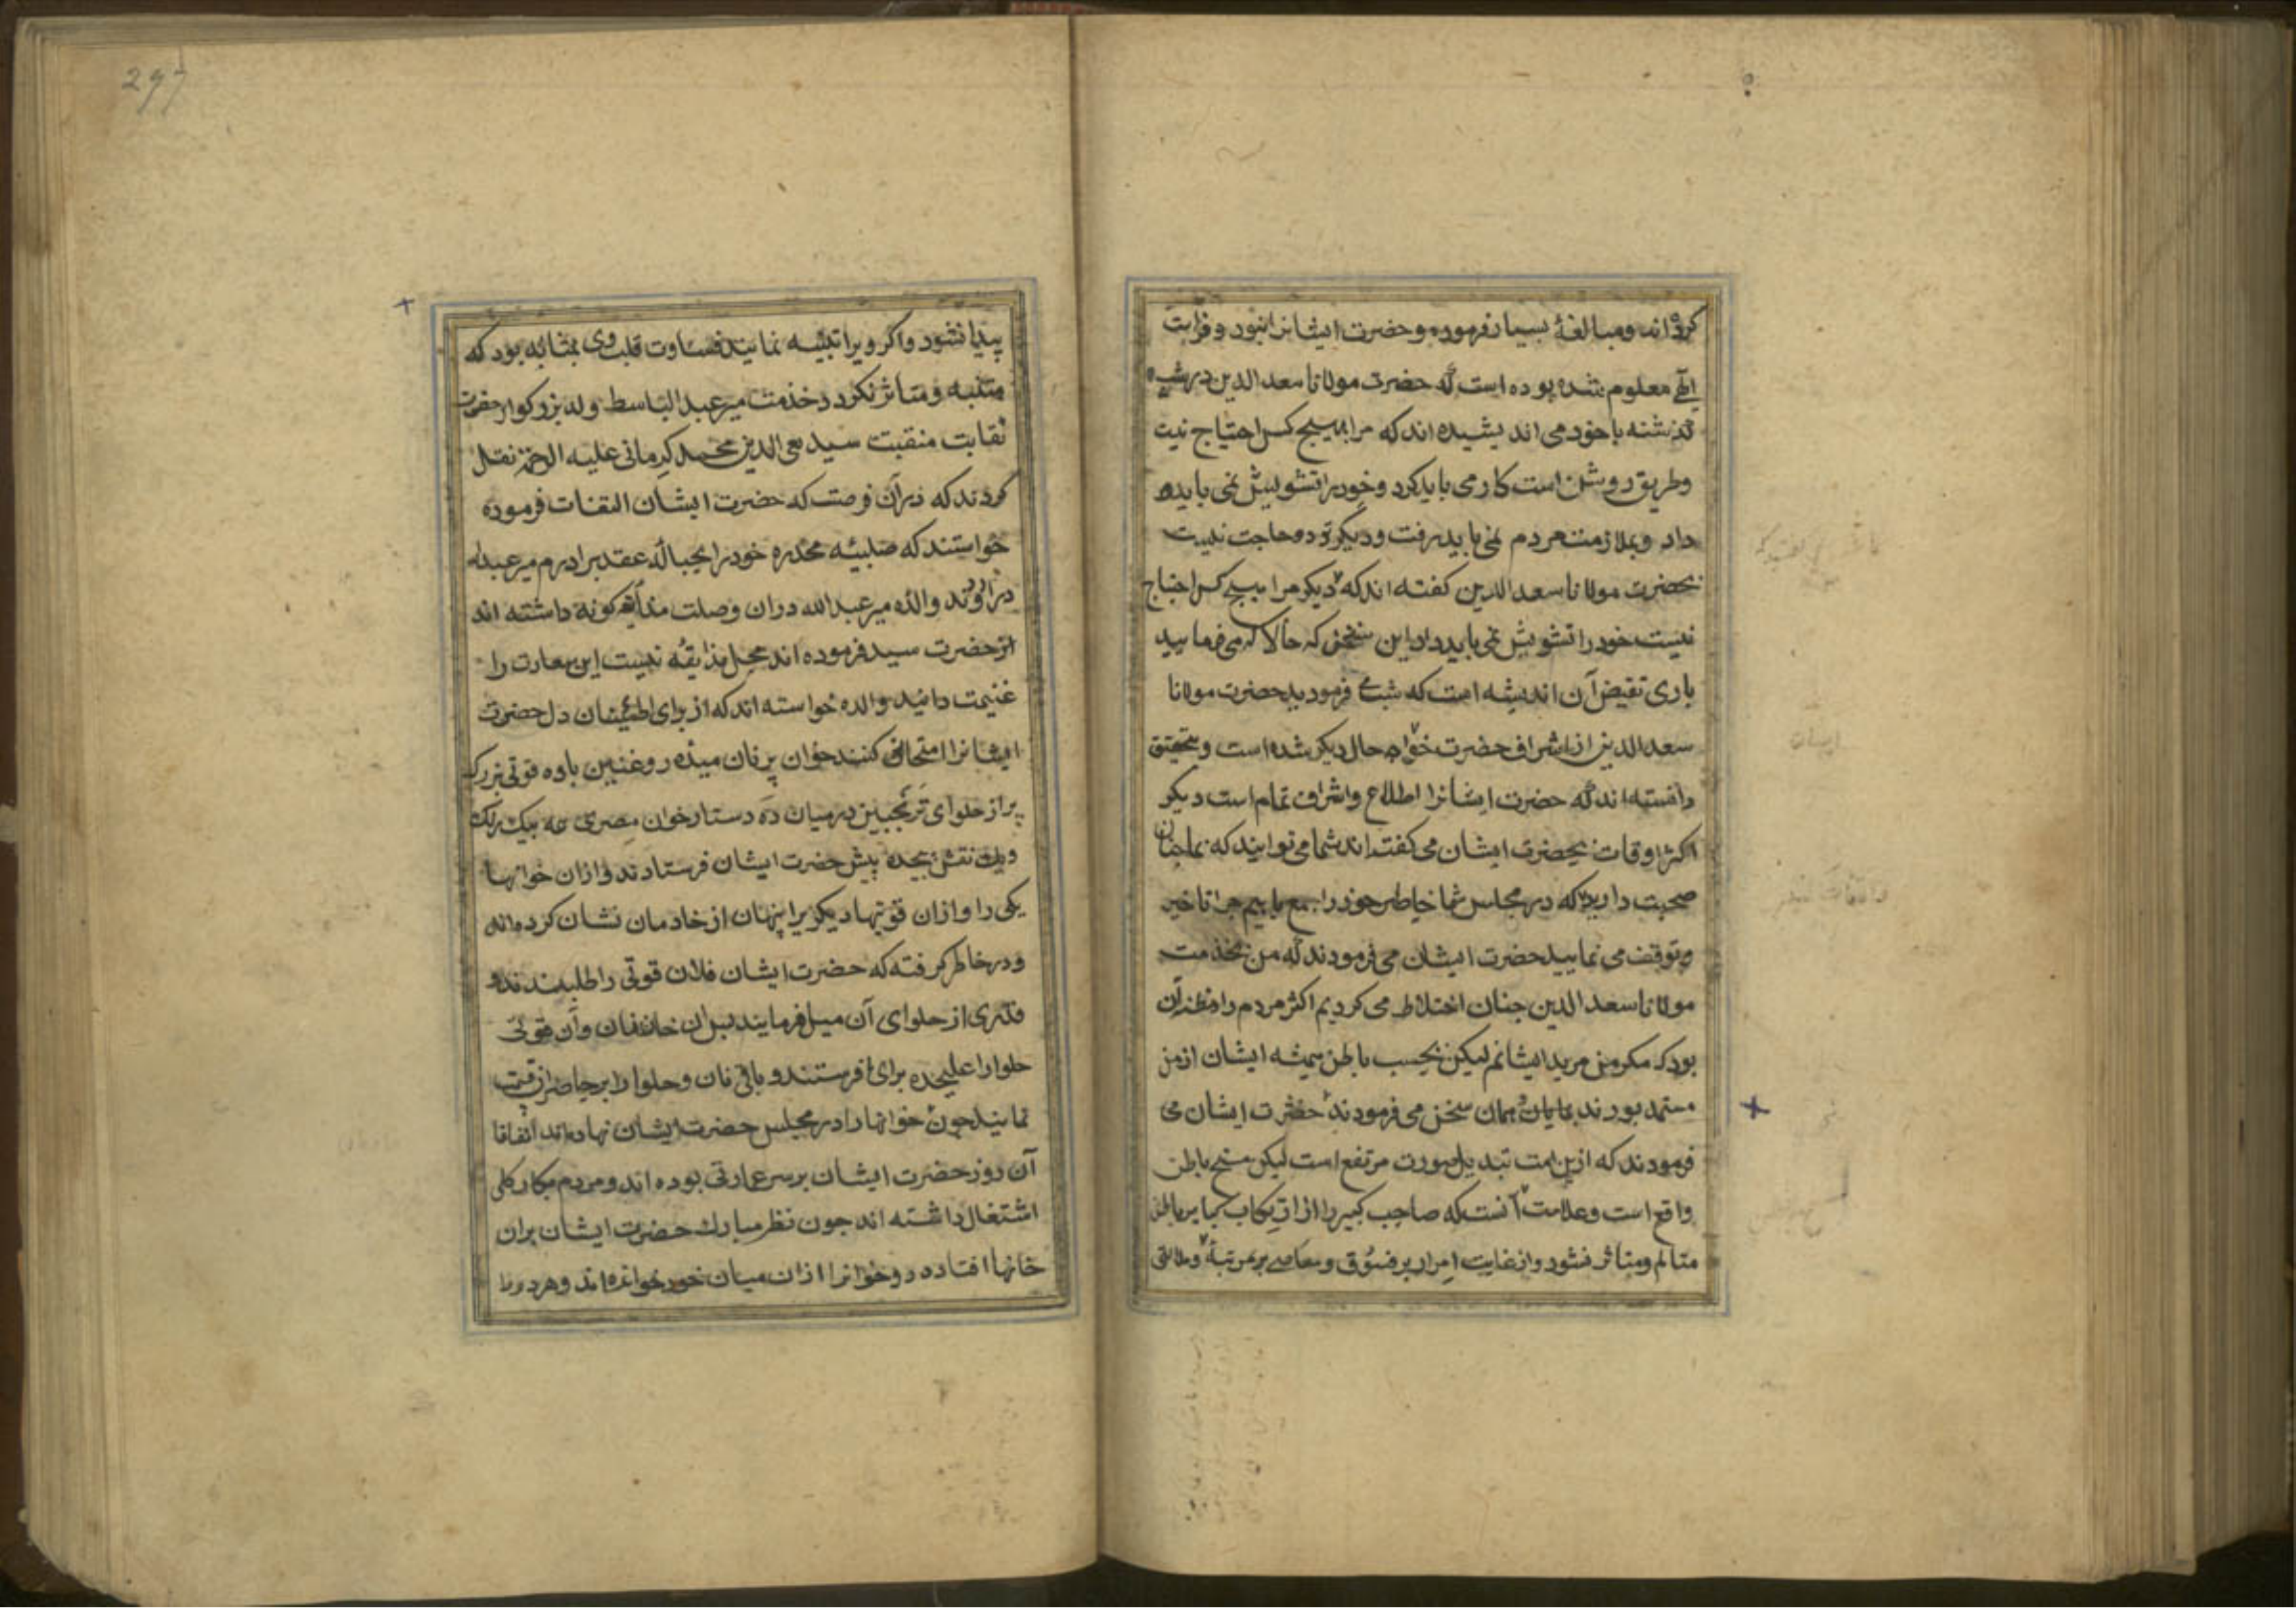 کرده اند و مبالغهٔ بسیار فرموده و حضرت ایشانرا بنور و فراست
الٓهی معلوم شده بوده است که حضرت مولانا سعد الدین در شب
گذشته با خود می اندیشیده اند که مرا بهیچ کس احتیاج نیست
و طریق روشن است کار می باید کرد و خود را تشویش نمی باید
داد و بملازمت مردم نمی باید رفت و دیگر تردد حاجت نیست
بحضرت مولانا سعد الدین کفته اند که دیگر مرا بهیچ کس احتیاج
نیست خود را تشویش نمی باید داد این سخن که حالا که می فرمایید
باری نقیض آن اندیشه است که شب می فرمودید حضرت مولانا
سعد الدین از اشراف حضرت خواجه حال دیکر شده است و بتحقیق
دانسته اند که حضرت ایشانرا اطلاع و اشراف تمام است دیکر
اکثر اوقات بحضرت ایشان می کفته اند شما می توانید که بما چنان
صحبت دارید که در مجلس شما خاطر خود را جمع یابیم چرا تاخیر
و توقف می نمایید حضرت ایشان می فرمودند که من بخدمت
مولانا سعد الدین چنان اختلاط می کردیم اکثر مردم را مظنه آن
بود که مکر من مرید ایشانم لیکن بحسب باطن همیشه ایشان از من
مستمد بودند بپایان همان سخن می فرمودند حضرت ایشان می
فرمودند که ازین امت تبدیل صورت مرتفع است لیکن مسخ باطن
واقع است و علامت آنست که صاحب کبیره را از ارتکاب کبایر باطن
متالم و متاثر نشود و از غایت اصرار بر فسوق و معاصی بر مرتبهٔ
پیدا نشود و اکر ویرا تنبیه نمایند قساوت قلب وی بمثابه بود که
متنبه و متاثر نکردد خدمت میر عبد الباسط ولد بزرکوار حضرت
نقابت منقبت سید تقی الدین محمد کرمانی علیه الرحمه نقل
کردند که در آن فرصت که حضرت ایشان التفات فرموده
خواستند که صلبیّه مخدره خود را بحبالهٔ عقد برادرم میر عبدالله
در آورند والدهٔ میر عبد الله در آن وصلت مناقشه کونه داشته اند
حضرت سید فرموده اند محل مذایقه نیست این سعادت را
غنیمت دانید والده خواسته اند که از برای اطمینان دل حضرت
ایشانرا امتحانی کنند خوان پر نان میده روغنین با ده قوتی بزرک
پر از حلوای ترنجبین در میان ده دستارخوان مصری همه بیک رنک
و یک نقش پیچده پیش حضرت ایشان فرستادند و از ان خوانها
یکی را و از ان قوتیها دیکریرا پنهان از خادمان نشان کرده اند
و در خاطر کرفته که حضرت ایشان فلان قوتی را طلبیدند و
قدری از حلوای آن میل فرمایند بس آن خان نان و آن قوتی
حلوا را علیحده برای ما فرستند و باقی نان و حلوا را بر حاضران قسمت
نمایند چون خوانها را در مجلس حضرت ایشان نهاده اند اتفاقا
آن روز حضرت ایشان بر سر عمارتی بوده اند و مردم بکار کلی
اشتغال داشته اند چون نظر مبارک حضرت ایشان بران
خانها افتاده دو خوانرا از ان میان خود خوانده اند و هر دو را